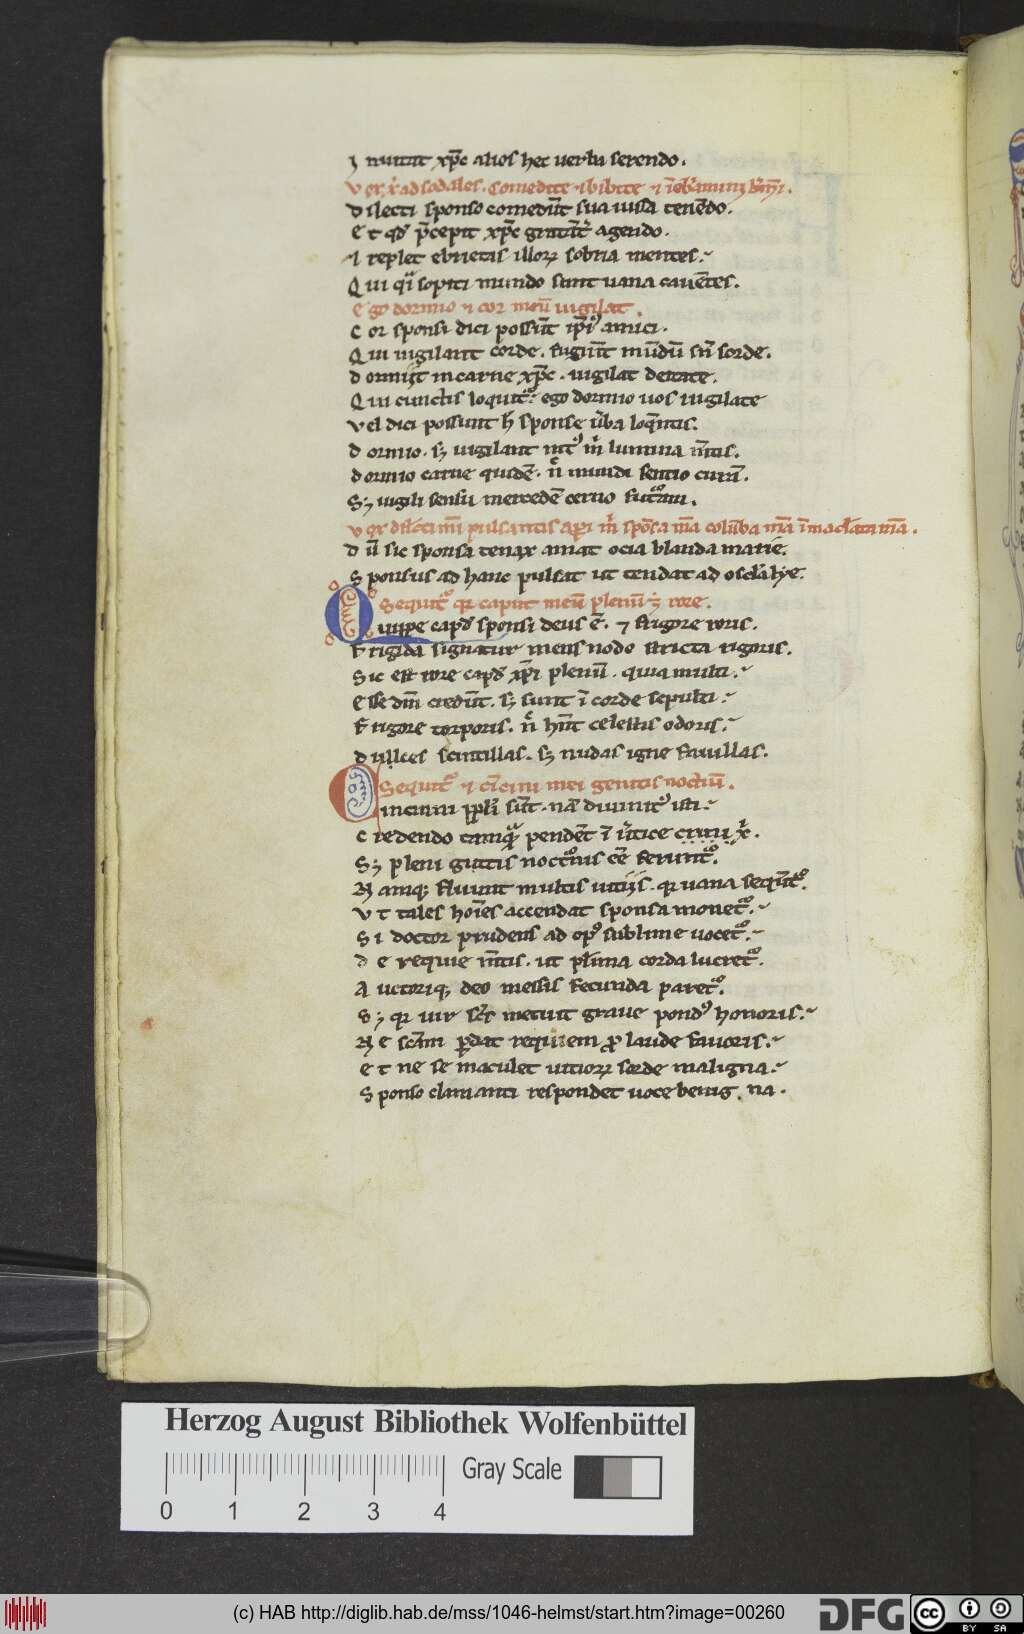 I nuitat xp̄c alios hec uerba serendo.
Vox x̄ ad sodales. Comedite ⁊ bibite ⁊
D ilecti sponso comedūt sua iussa tenēdo.
E t qd̄ p̄cepit xp̄c agendo.
replet ebrietas illoꝝ sobria mentes.
Q ui q̄i sopiti mundo sunt uana cauētes.
Ego dormio ⁊ cor meū uigilat.
C or sponsi dici possūt ip̄i⁹ amici.
Q ui uigilant corde. fugiūt mūdū sn̄ sorde.
D ormijt in carne xp̄c. uigilat deitate.
Q ui cunctis loquit᷑. ego dormio uos uigilate
V el dici possunt h̄ sponse ūba loq̄ntis.
D ormio. sꝫ uigilant int⁹ m̄ lumina m̄tis.
D ormio carne quidē. n̄ mundi sentio curā.
S ꝫ uigili sensu mercedē cerno futurā.
Vox dilecti pulsantis ap̄i m̄ spōsa m̄a colūba m̄a īmaclata m̄a.
D ū sic sponsa tenax amat ocia blanda marie.
S ponsus ad hanc pulsat ut tendat ad oscla lye.
Sequit᷑ qr caput meū plenū ē rore.
Quippe capd̄ sponsi deus ē. ⁊ frigore roris.
F rigida signatur mens nodo stricta rigoris.
S ic est rore capd̄ xp̄i plenū. quia multi.
E sse dm̄ credūt. sꝫ sunt ī corde sepulti.
F rigore torporis. n̄ hn̄t celestis odoris.
D ulces scintillas. sꝫ nudas igne fauillas.
Sequit᷑ ⁊ cīcini mei guttis noctiū.
Cincinni pp̄li sūt. nā diuinit⁹ isti.
C redendo tamquā pendēt ī ūtice x̄.
S ꝫ pleni guttis nocturnis eē ferunt᷑.
N amqꝫ fluunt multis uitijs. qr uana sequūt᷑.
V t tales hoīes accendat sponsa monet᷑.
S i doctor prudens ad op⁹ sublime uocet᷑.
D e requie m̄tis. ut plīma corda lucret᷑.
A uctoriqꝫ deo messis fecunda paret᷑.
S ꝫ qr uir sc̄s metuit graue pond⁹ honoris.
N e scām perdat requiem pro laude fauoris.
E t ne se maculet uitioꝝ sorde maligna.
S ponso clamanti respondet uoce benig na.
Herzog August Bibliothek Wolfenbüttel
Gray Scale
0 1 2 3 4
(c) HAB http://diglib.hab.de/mss/1046-helmst/start.htm?image=00260
DFG
cc BY SA